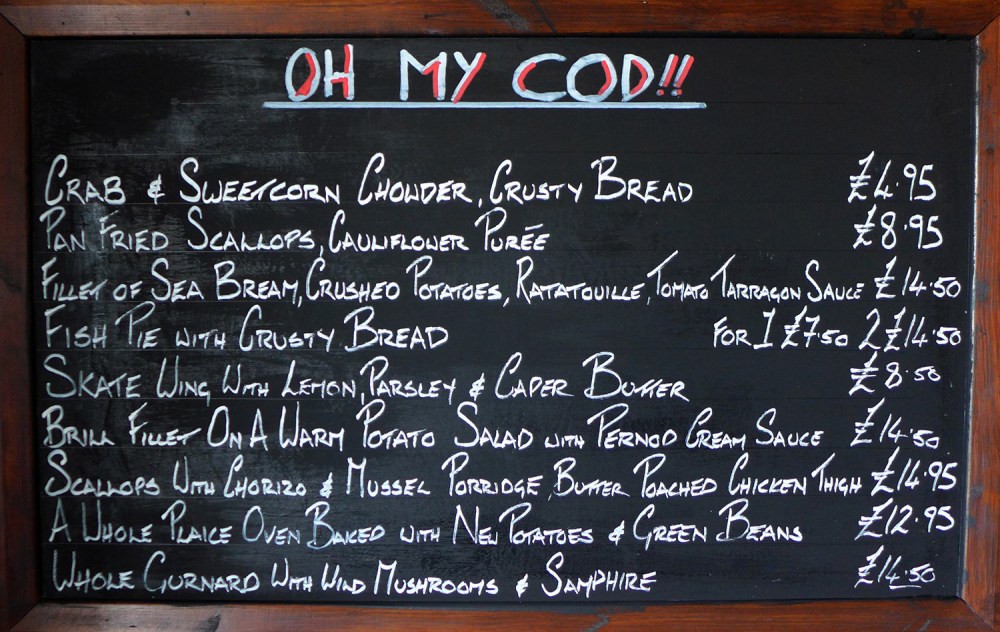 OH MY COD!!
CRAB & SWEETCORN CHOWDER, CRUSTY BREAD £4.95
PAN FRIED SCALLOPS, CAULIFLOWER PURÉE £8.95
FILLET OF SEA BREAM, CRUSHED POTATOES, RATATOUILLE, TOMATO TARRAGON SAUCE £14.50
FISH PIE WITH CRUSTY BREAD FOR 1 £7.50 2 £14.50
SKATE WING WITH LEMON, PARSLEY & CAPER BUTTER £8.50
BRILL FILLET ON A WARM POTATO SALAD WITH PERNOD CREAM SAUCE £14.50
SCALLOPS WITH CHORIZO & MUSSEL PORRIDGE, BUTTER POACHED CHICKEN THIGH £14.95
A WHOLE PLAICE OVEN BAKED WITH NEW POTATOES & GREEN BEANS £12.95
WHOLE GURNARD WITH WILD MUSHROOMS & SAMPHIRE £14.50